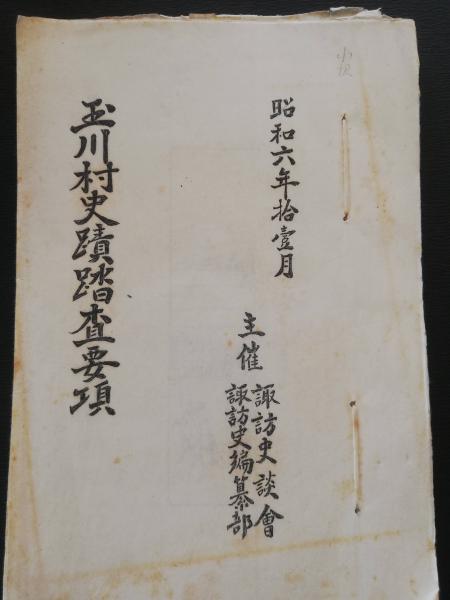 昭和六年拾壹月
主催
諏訪史談會
諏訪史編纂部
玉川村史蹟踏査要項